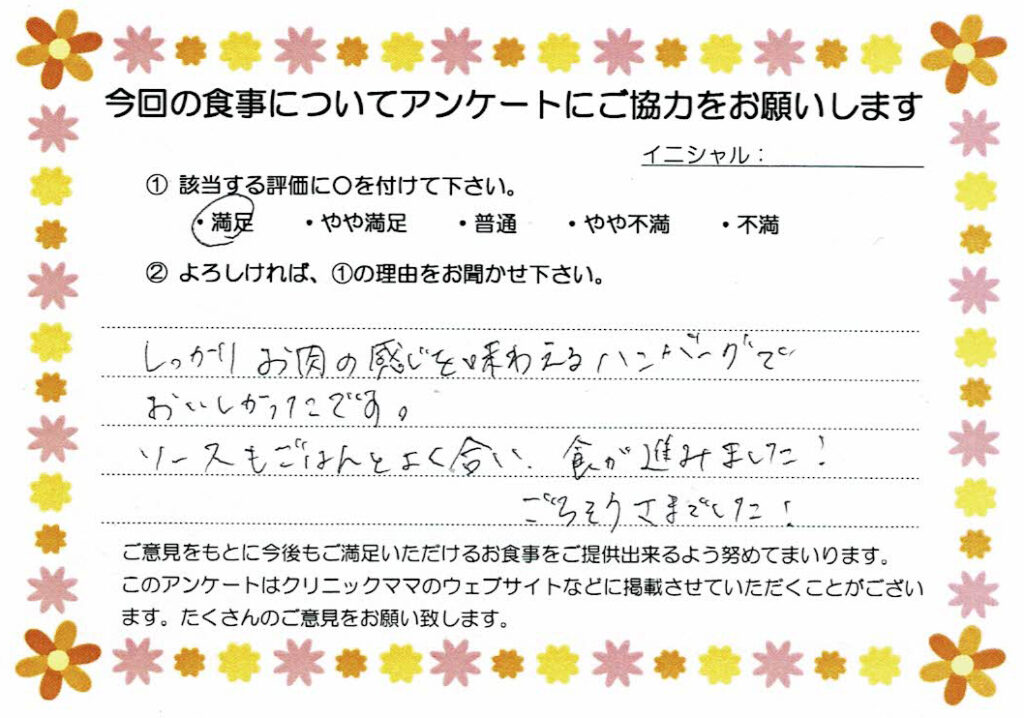 今回の食事についてアンケートにご協力をお願いします
イニシャル：
① 該当する評価に〇を付けて下さい。
・満足　・やや満足　・普通　・やや不満　・不満
② よろしければ、①の理由をお聞かせ下さい。
しっかりお肉の感じを味わえるハンバーグで
おいしかったです。
ソースもごはんとよく合い、食が進みました！
ごちそうさまでした！
ご意見をもとに今後もご満足いただけるお食事をご提供出来るよう努めてまいります。
このアンケートはクリニックママのウェブサイトなどに掲載させていただくことがござい
ます。たくさんのご意見をお願い致します。